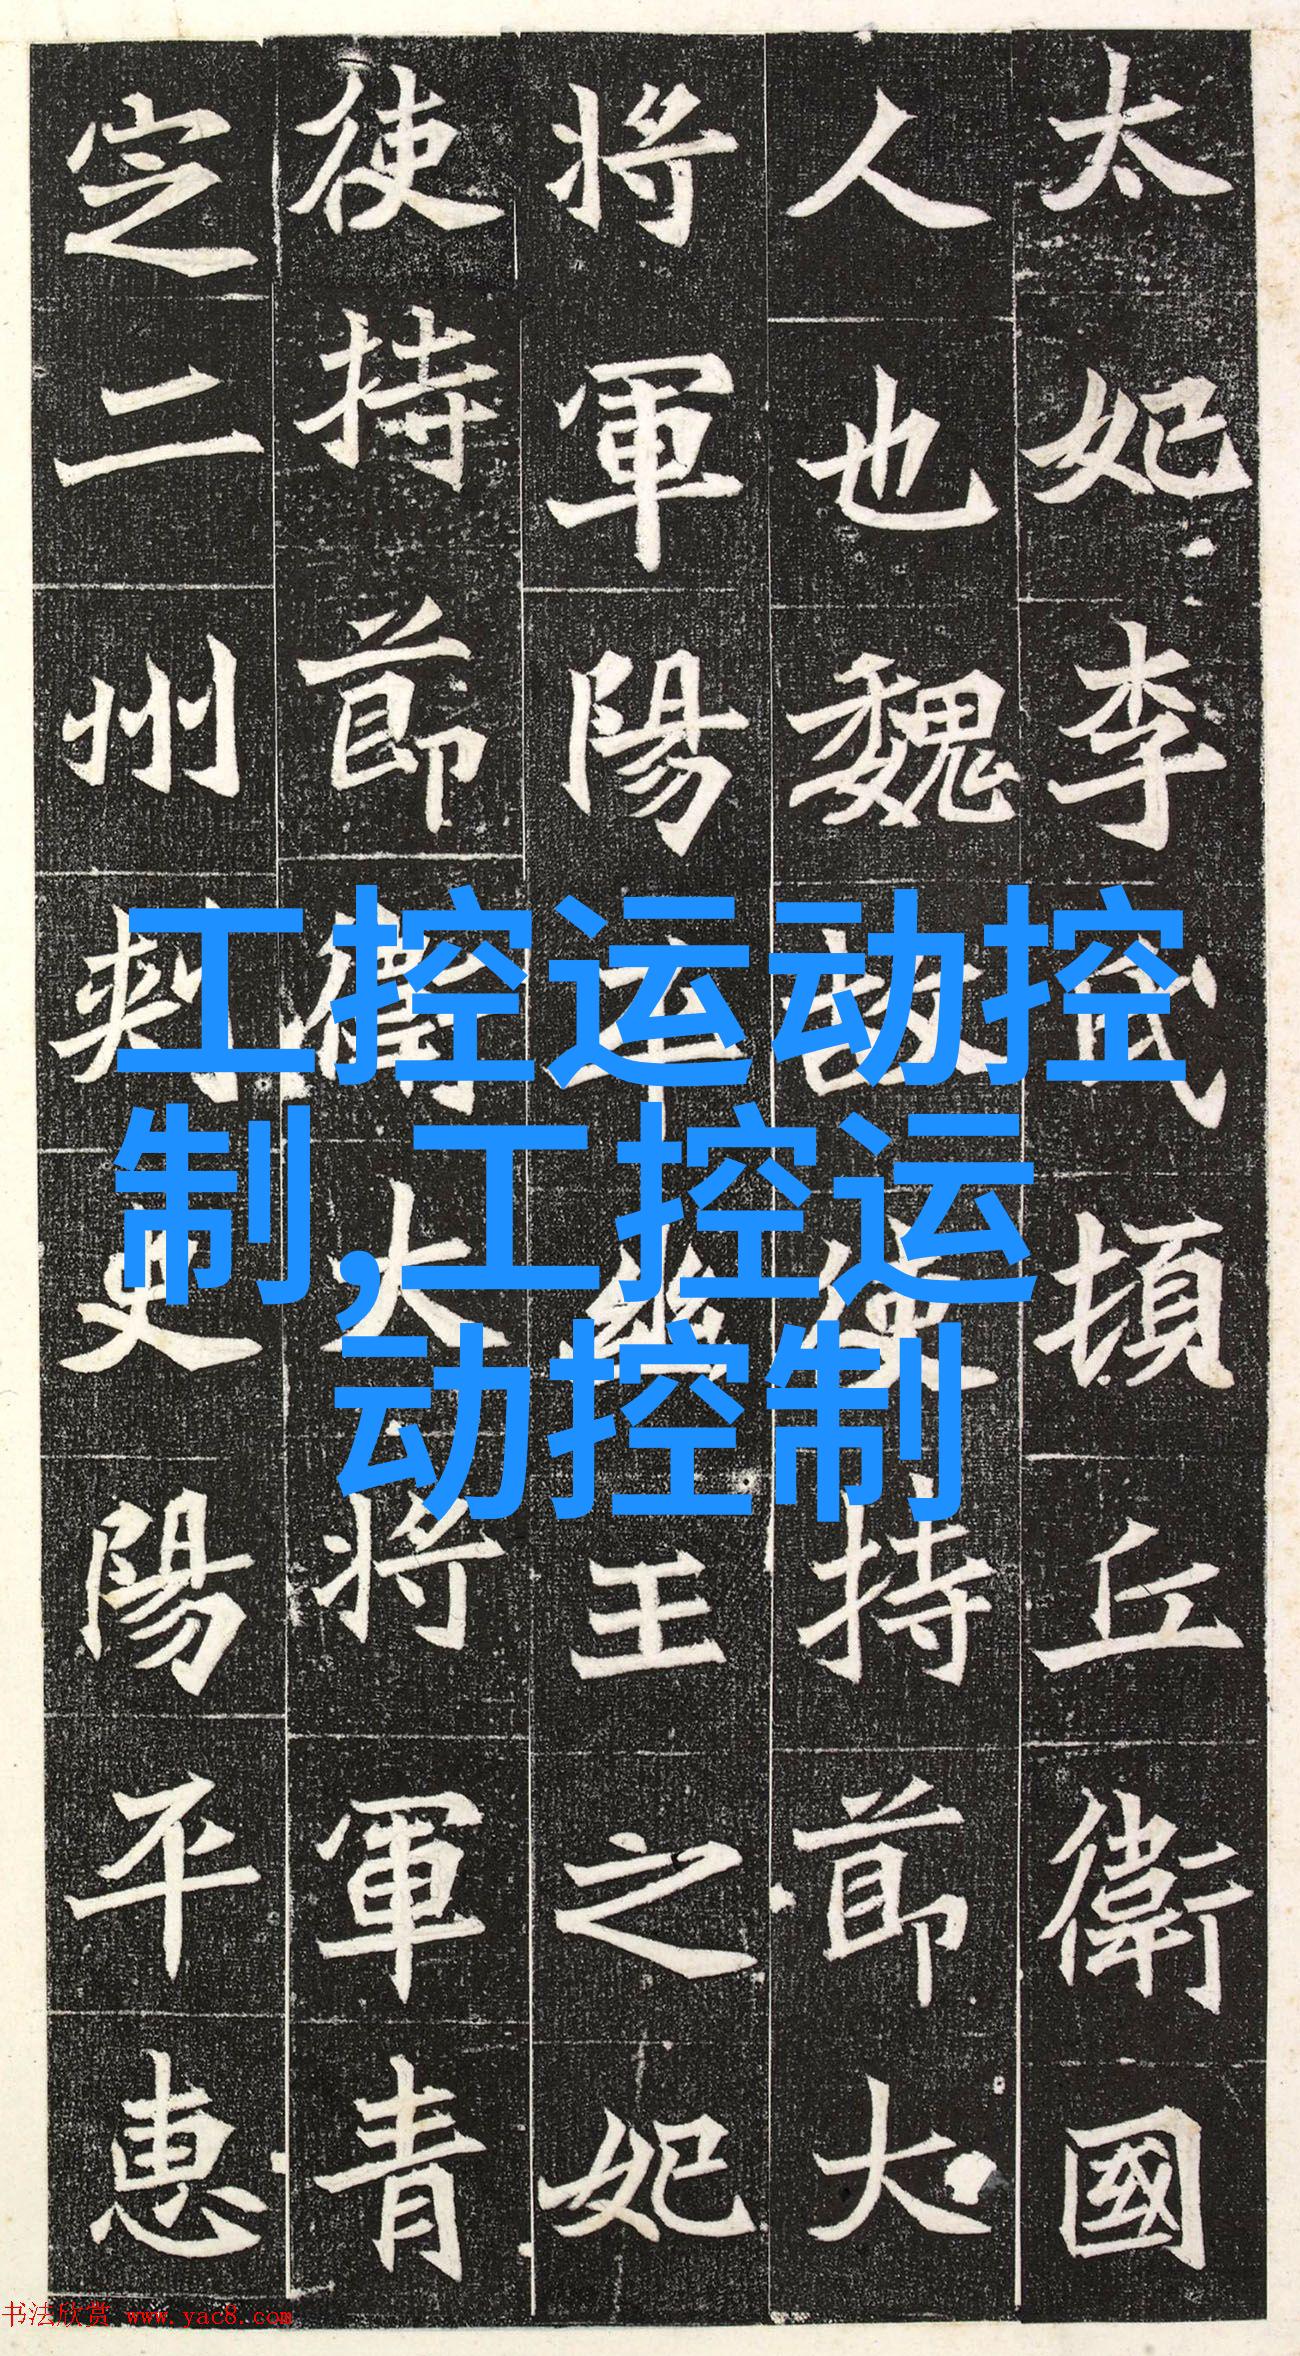 太妃李氏頓丘衛國
人也魏故使持節大
將軍陽平幽王之妃
使持節衛大將軍青
定二州刺史陽平惠
工控运动控
制,工控运
动控制
书法欣赏 www.yac8.com